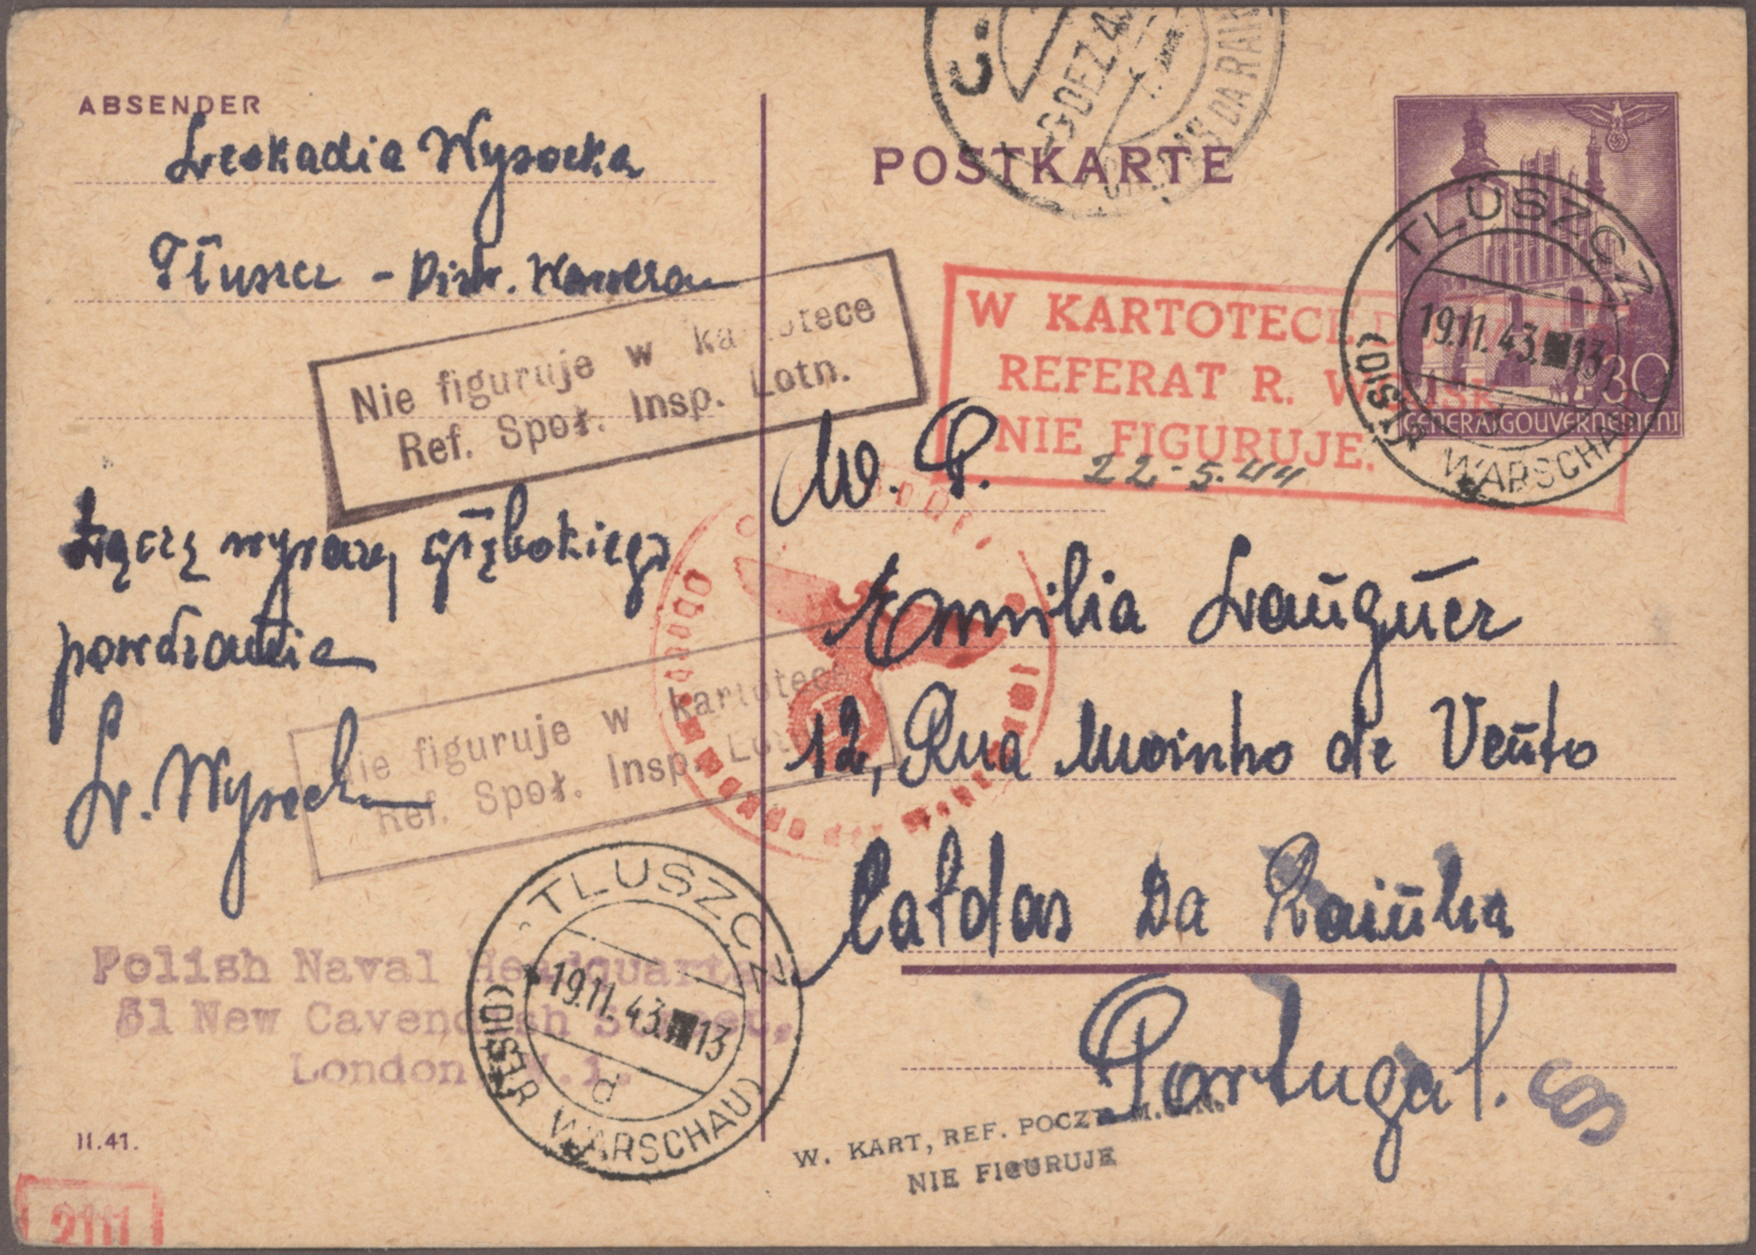 ABSENDER
Leokadia Wysocka
Tłuszcz - Distr. Warschau
Nie figuruje w kartotece
Ref. Społ. Insp. Lotn.
Łączę wyrazy głębokiego
poważania
L. Wysocka
Nie figuruje w kartotece
Ref. Społ. Insp. Lotn.
Polish Naval Headquarters,
51 New Cavendish Street,
London W.1.
II.41.
2111
TLUSZCZ
19.11.43.13
d
(DISTR WARSCHAU)
POSTKARTE
DEZ 43
CALDAS DA RAINHA
W KARTOTECE
REFERAT R.
NIE FIGURUJE.
22-5.44
30
GENERALGOUVERNEMENT
TLUSZCZ
19.11.43.13
(DISTR WARSCHAU)
W. P.
Emilia
12, Rua Moinho de Vento
Caldas Da Rainha
Portugal.
W. KART, REF. POCZT. M.
NIE FIGURUJE